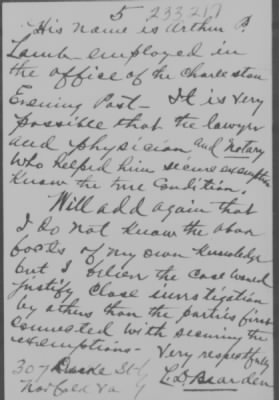 5 233,217
His name is Arthur P.
Lamb - employed in
the office of the Charleston
Evening Post - It is very
possible that the lawyer
and physician and Notary
who helped him secure exemption
know the true Condition.
Will add again that
I do not know the above
facts of my own Knowledge
but I believe the case would
justify close investigation
by others than the parties first
connected with securing the
exemptions - Very respectfully
307 St C. D. Bearden
Norfolk Va